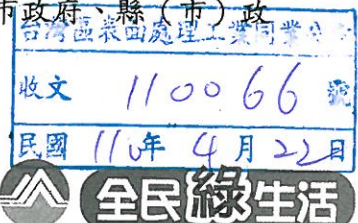 市政府、縣（市）政
台灣區表面處理工業同業公會
收文 110066 號
民國 110年 4月 22日
全民綠生活